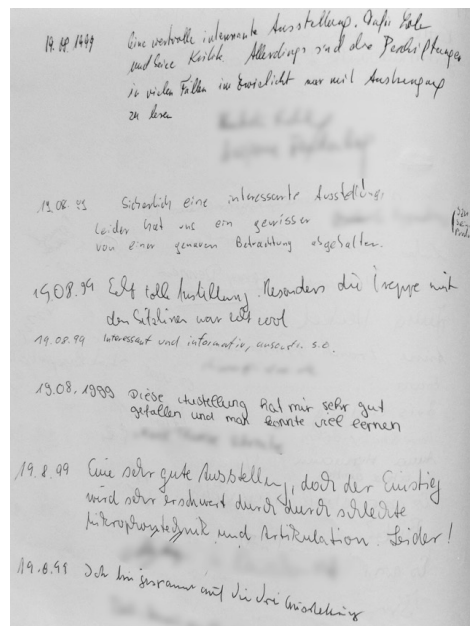 19.08.1999 Eine wertvolle interessante Ausstellung. Dafür Lob
und keine Kritik. Allerdings sind die Beschriftungen
in vielen Fällen im Zwielicht nur mit Anstrengung
zu lesen
19.08.99 Sicherlich eine interessante Ausstellung,
leider hat uns ein gewisser
von einer genauen Betrachtung abgehalten.
19.08.99 Echt tolle Austellung. Besonders die Treppe mit
den Sitzkissen war echt cool
19.08.99 Interessant und informativ, ansonsten s.o.
19.08.1999 Diese Austellung hat mir sehr gut
gefallen und man konnte viel lernen
19.8.99 Eine sehr gute Ausstellung, doch der Einstieg
wird sehr erschwert durch durch schlechte
Mikrophontechnik und Artikulation. Leider!
19.8.99 Ich bin gespannt auf die